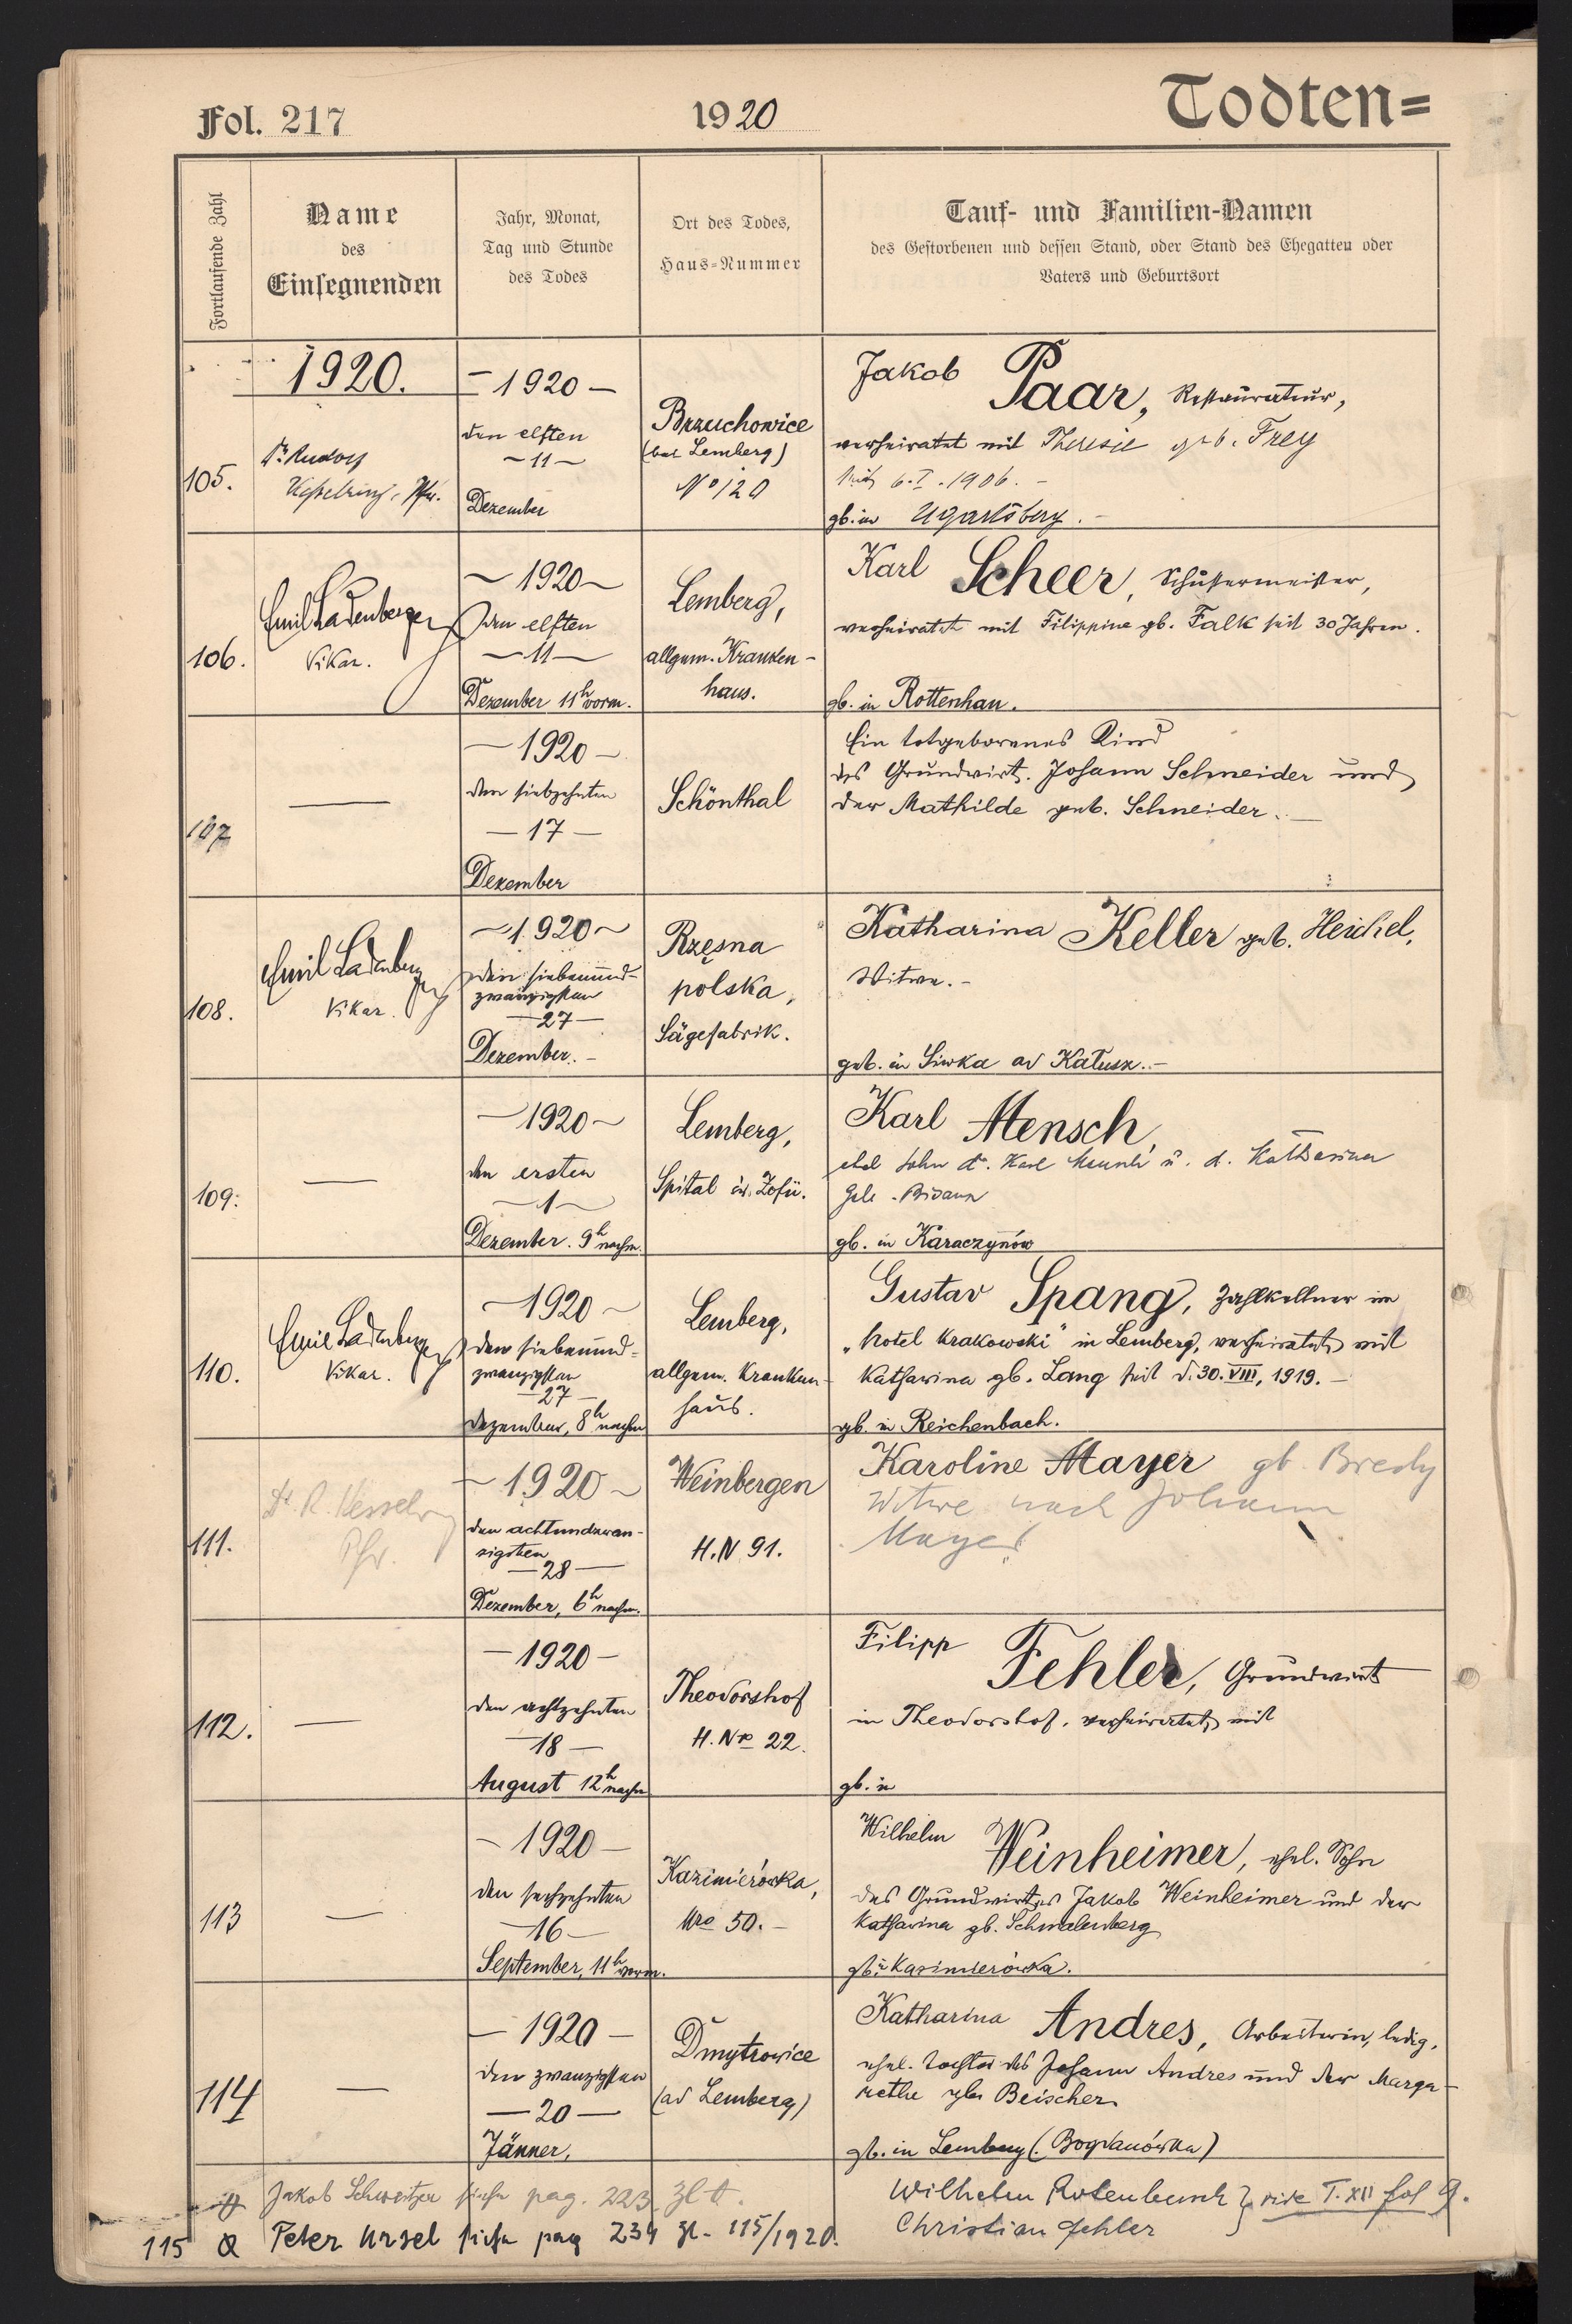 Fol. 217
1920
Todten=
Fortlaufende Zahl
Name
des
Einsegnenden
Jahr, Monat,
Tag und Stunde
des Todes
Ort des Todes,
Haus-Nummer
Tauf- und Familien-Namen
des Gestorbenen und dessen Stand, oder Stand des Ehegatten oder
Vaters und Geburtsort
1920.
105.
Dr Rudolf
Kesselring, Pfr.
– 1920 –
den elften
– 11 –
Dezember
Brzuchowice
(bei Lemberg)
No 120
Jakob Paar, Restaurateur,
verheiratet mit Theresie geb. Frey
seit 6.I.1906. –
gb. in Ugartsberg. –
106.
Emil Ladenberger
Vikar.
– 1920 –
den elften
– 11 –
Dezember 11h vorm.
Lemberg,
allgem. Kranken-
haus.
Karl Scheer, Schustermeister,
verheiratet mit Filippine gb. Falk seit 30 Jahren.
gb. in Rottenhan.
107
—
– 1920 –
den siebzehnten
– 17 –
Dezember
Schönthal
Ein totgeborenes Kind
des Grundwirts. Johann Schneider und
der Mathilde geb. Schneider. –
108.
Emil Ladenberger
Vikar.
– 1920 –
den siebenund-
zwanzigsten
– 27 –
Dezember. –
Rzęsna
polska,
Sägefabrik.
Katharina Keller geb. Heichel,
Witwe. –
geb. in Siwka ad Kałusz. –
109.
—
– 1920 –
den ersten
– 1 –
Dezember. 9h nachm.
Lemberg,
Spital św. Zofii.
Karl Mensch,
ehel Sohn d. Karl Mensch u. d. Katharina
gb. in Karaczynów
110.
Emil Ladenberger
Vikar.
– 1920 –
den siebenund-
zwanzigsten
– 27 –
Dezember, 8h nachm
Lemberg,
allgem. Kranken-
haus.
Gustav Spang, Zahlkellner im
„Hotel Krakowski" in Lemberg, verheiratet mit
Katharina gb. Lang seit d. 30. VIII, 1919. –
gb. in Reichenbach.
111.
Dr. R. Kesselring
Pfr.
– 1920 –
den achtundzwan-
zigsten
– 28 –
Dezember, 6h nachm.
Weinbergen
H.N 91.
Karoline Mayer gb. Bredy
Witwe nach Johann
Mayer
112.
—
– 1920 –
den achtzehnten
– 18 –
August 12h nachm
Theodorshof
H. Nr 22.
Filipp Fehler, Grundwirt
in Theodorshof, verheiratet mit
gb. in
113
—
– 1920 –
den sechzehnten
– 16 –
September, 11h vorm.
Kazimierówka,
Nro 50. –
Wilhelm Weinheimer, ehel. Sohn
des Grundwirtes Jakob Weinheimer und der
Katharina gb. Schmalenberg
gb. in Kazimierówka.
114
—
– 1920 –
den zwanzigsten
– 20 –
Jänner,
Dmytrowice
(ad Lemberg)
Katharina Andres, Arbeiterin, ledig,
ehel. Tochter des Johann Andres und der Marga-
rethe geb. Beischer
gb. in Lemberg (Bogdanówka)
Jakob Schweitzer siehe pag. 223
Wilhelm Rotenbusch } vide T. XII fol 9.
Christian Fehler
115 Peter Ursel siehe pag 234 Zl. 115/1920.